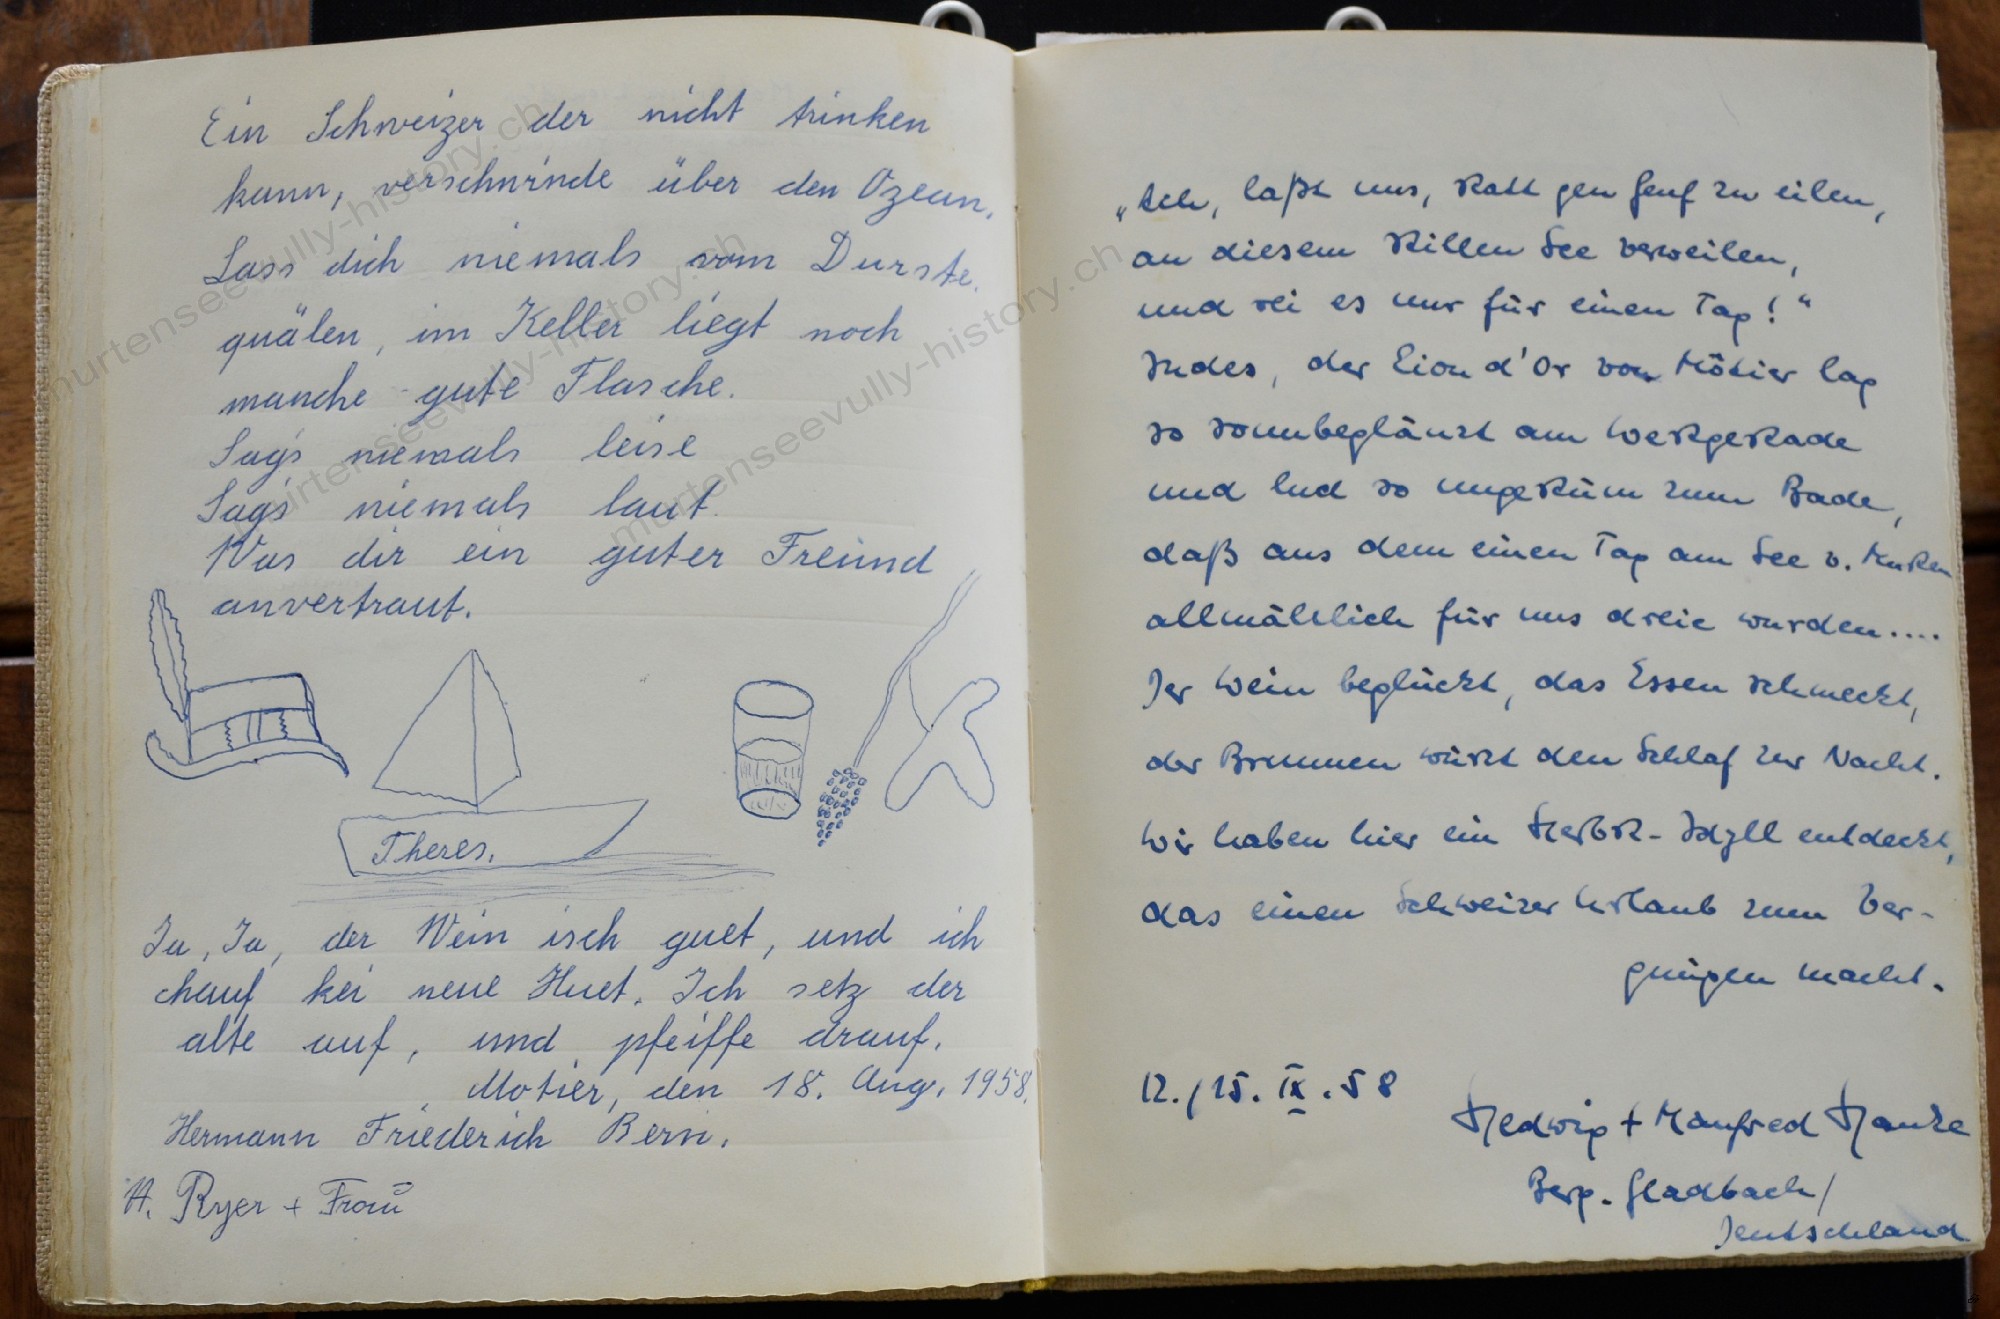 Ein Schweizer der nicht trinken
kann, verschwinde über den Ozean.
Lass dich niemals vom Durste
quälen, im Keller liegt noch
manche gute Flasche.
Sag's niemals leise
Sag's niemals laut.
Was dir ein guter Freund
anvertraut.
Theres.
Ja, Ja, der Wein isch guet, und ich
chauf kei neue Huet. Ich setz der
alte auf, und pfeiffe drauf.
Motier, den 18. Aug. 1958.
Hermann Friederich Bern.
H. Ryser + Frau
„Ach, laßt uns, statt gen Genf zu eilen,
an diesem stillen See verweilen,
und sei es nur für einen Tag!“
Indes, der Lion d'Or von Môtier lag
so sonnbeglänzt am Westgestade
und lud so ungestüm zum Bade,
daß aus dem einen Tag am See v. Murten
allmählich für uns dreie wurden....
Der Wein beglückt, das Essen schmeckt,
der Brunnen würzt den Schlaf zur Nacht.
Wir haben hier ein Herbst-Idyll entdeckt,
das einen Schweizer Urlaub zum Ver-
gnügen macht.
12./15. IX. 58
Hedwig + Manfred Hanke
Berg. Gladbach/
Deutschland
murtenseevully-history.ch
murtenseevully-history.ch
murtenseevully-history.ch